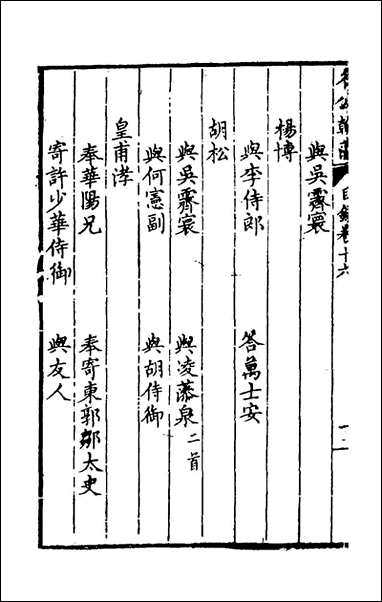 與吳霽寰
楊博
與李侍郎 答萬士安
胡松
與吳霽寰 與凌藻泉二首
與何憲副 與胡侍御
皇甫涍
奉華陽兄 奉寄東郭鄒太史
寄許少華侍御 與友人
目錄卷十六